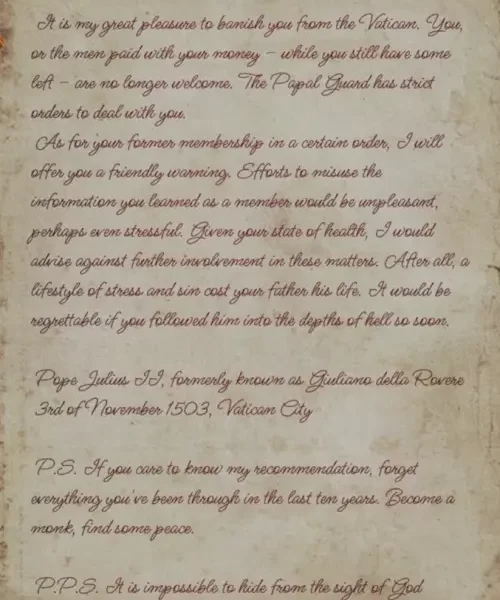 It is my great pleasure to banish you from the Vatican. You,
or the men paid with your money – while you still have some
left – are no longer welcome. The Papal Guard has strict
orders to deal with you.
As for your former membership in a certain order, I will
offer you a friendly warning. Efforts to misuse the
information you learned as a member would be unpleasant,
perhaps even stressful. Given your state of health, I would
advise against further involvement in these matters. After all, a
lifestyle of stress and sin cost your father his life. It would be
regrettable if you followed him into the depths of hell so soon.
Pope Julius II, formerly known as Giuliano della Rovere
3rd of November 1503, Vatican City
P.S. If you care to know my recommendation, forget
everything you've been through in the last ten years. Become a
monk, find some peace.
P.P.S. It is impossible to hide from the sight of God